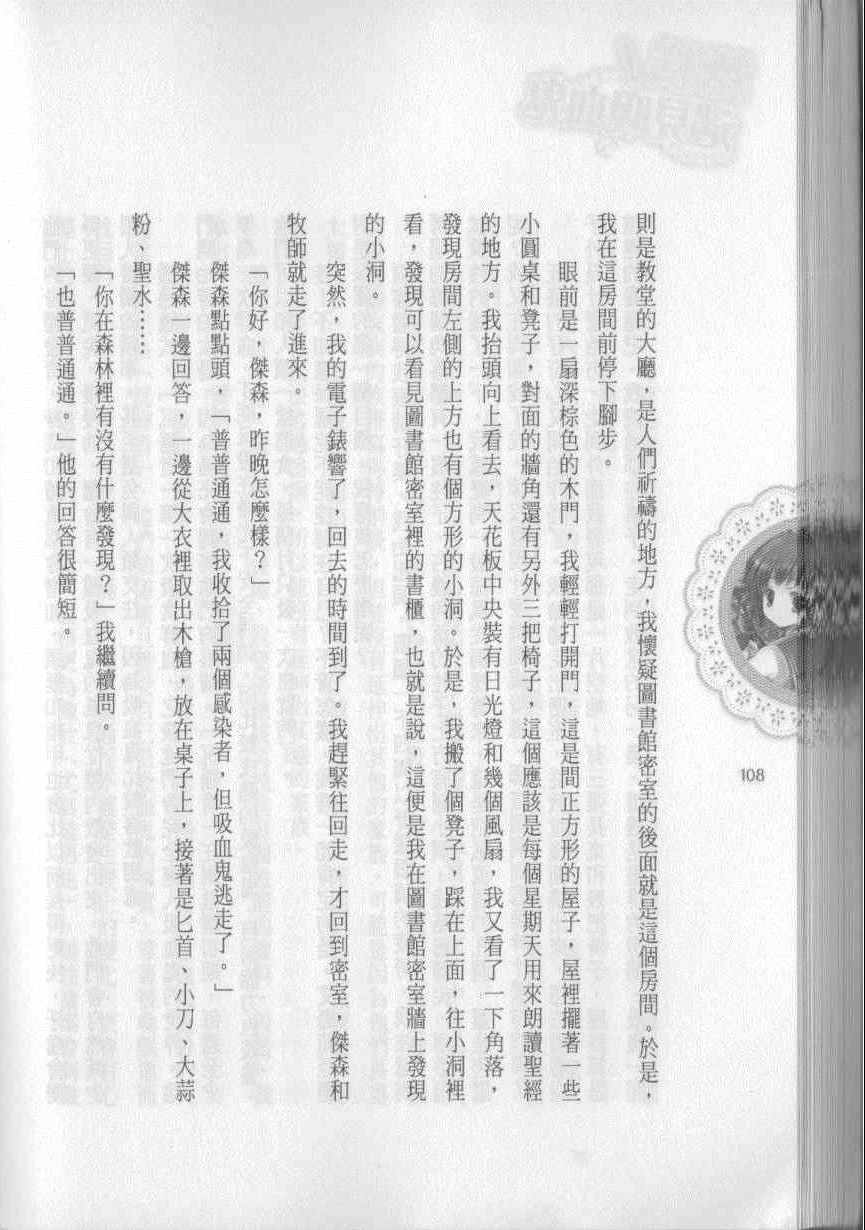 則是教堂的大廳，是人們祈禱的地方，我懷疑圖書館密室的後面就是這個房間。於是，
我在這房間前停下腳步。
眼前是一扇深棕色的木門，我輕輕打開門，這是間正方形的屋子，屋裡擺著一些
小圓桌和凳子，對面的牆角還有另外三把椅子，這個應該是每個星期天用來朗讀聖經
的地方。我抬頭向上看去，天花板中央裝有日光燈和幾個風扇，我又看了一下角落，
發現房間左側的上方也有個方形的小洞。於是，我搬了個凳子，踩在上面，往小洞裡
看，發現可以看見圖書館密室裡的書櫃，也就是說，這便是我在圖書館密室牆上發現
的小洞。
突然，我的電子錶響了，回去的時間到了。我趕緊往回走，才回到密室，傑森和
牧師就走了進來。
「你好，傑森，昨晚怎麼樣？」
傑森點點頭，「普普通通，我收拾了兩個感染者，但吸血鬼逃走了。」
傑森一邊回答，一邊從大衣裡取出木槍，放在桌子上，接著是匕首、小刀、大蒜
粉、聖水……
「你在森林裡有沒有什麼發現？」我繼續問。
「也普普通通。」他的回答很簡短。
108